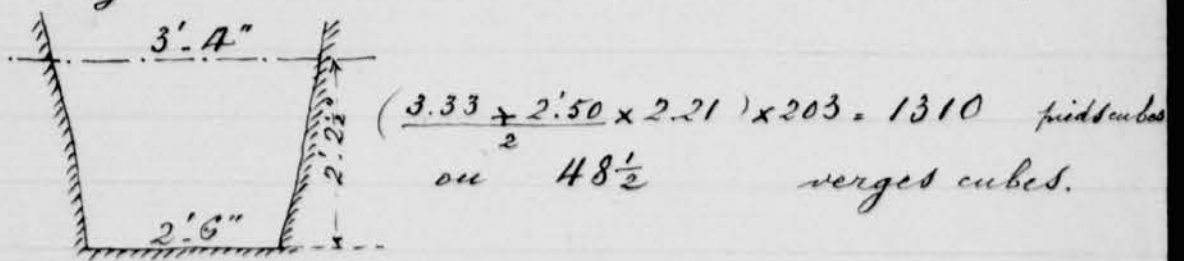 3'-4"
2'.2½"
2'-6"
(3.33 + 2'.50 / 2 × 2.21) × 203 = 1310 pieds cubes
ou 48½ verges cubes.